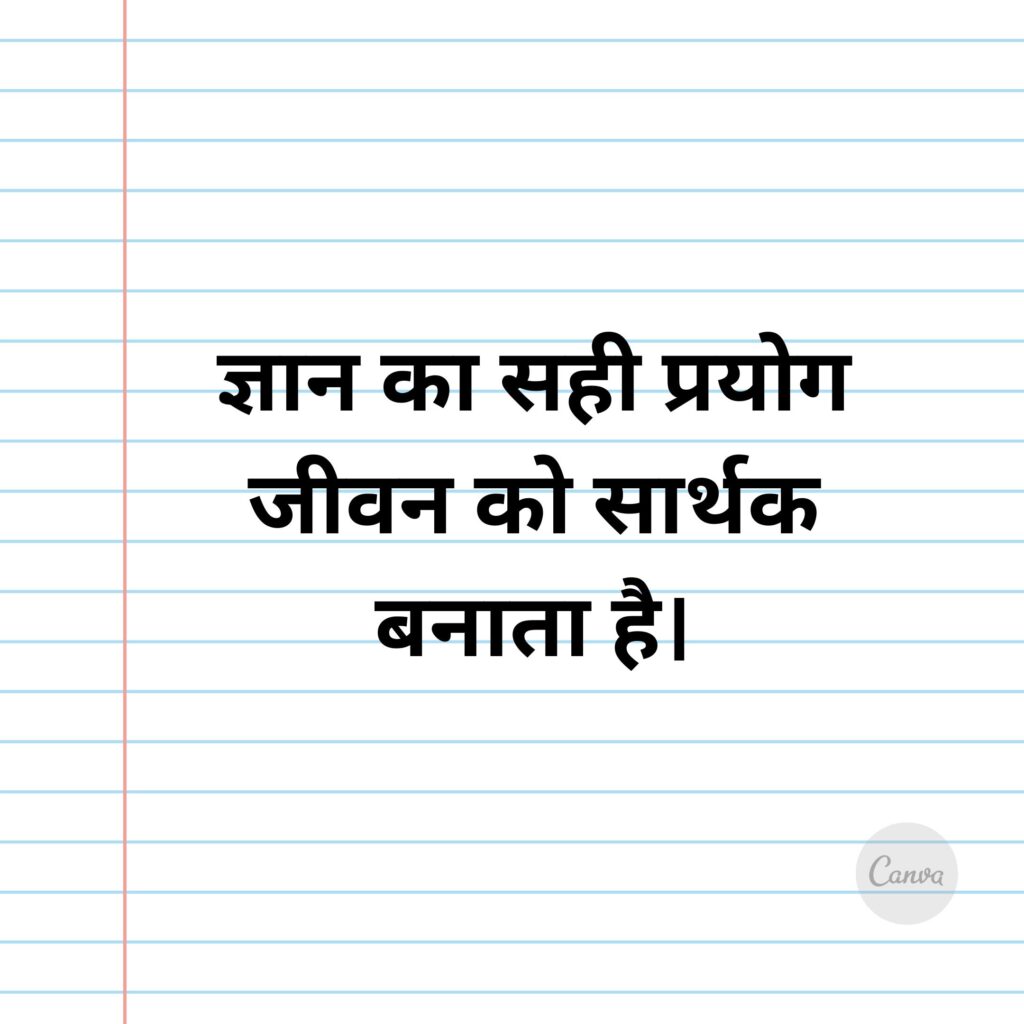 ज्ञान का सही प्रयोग
जीवन को सार्थक
बनाता है।
Canva